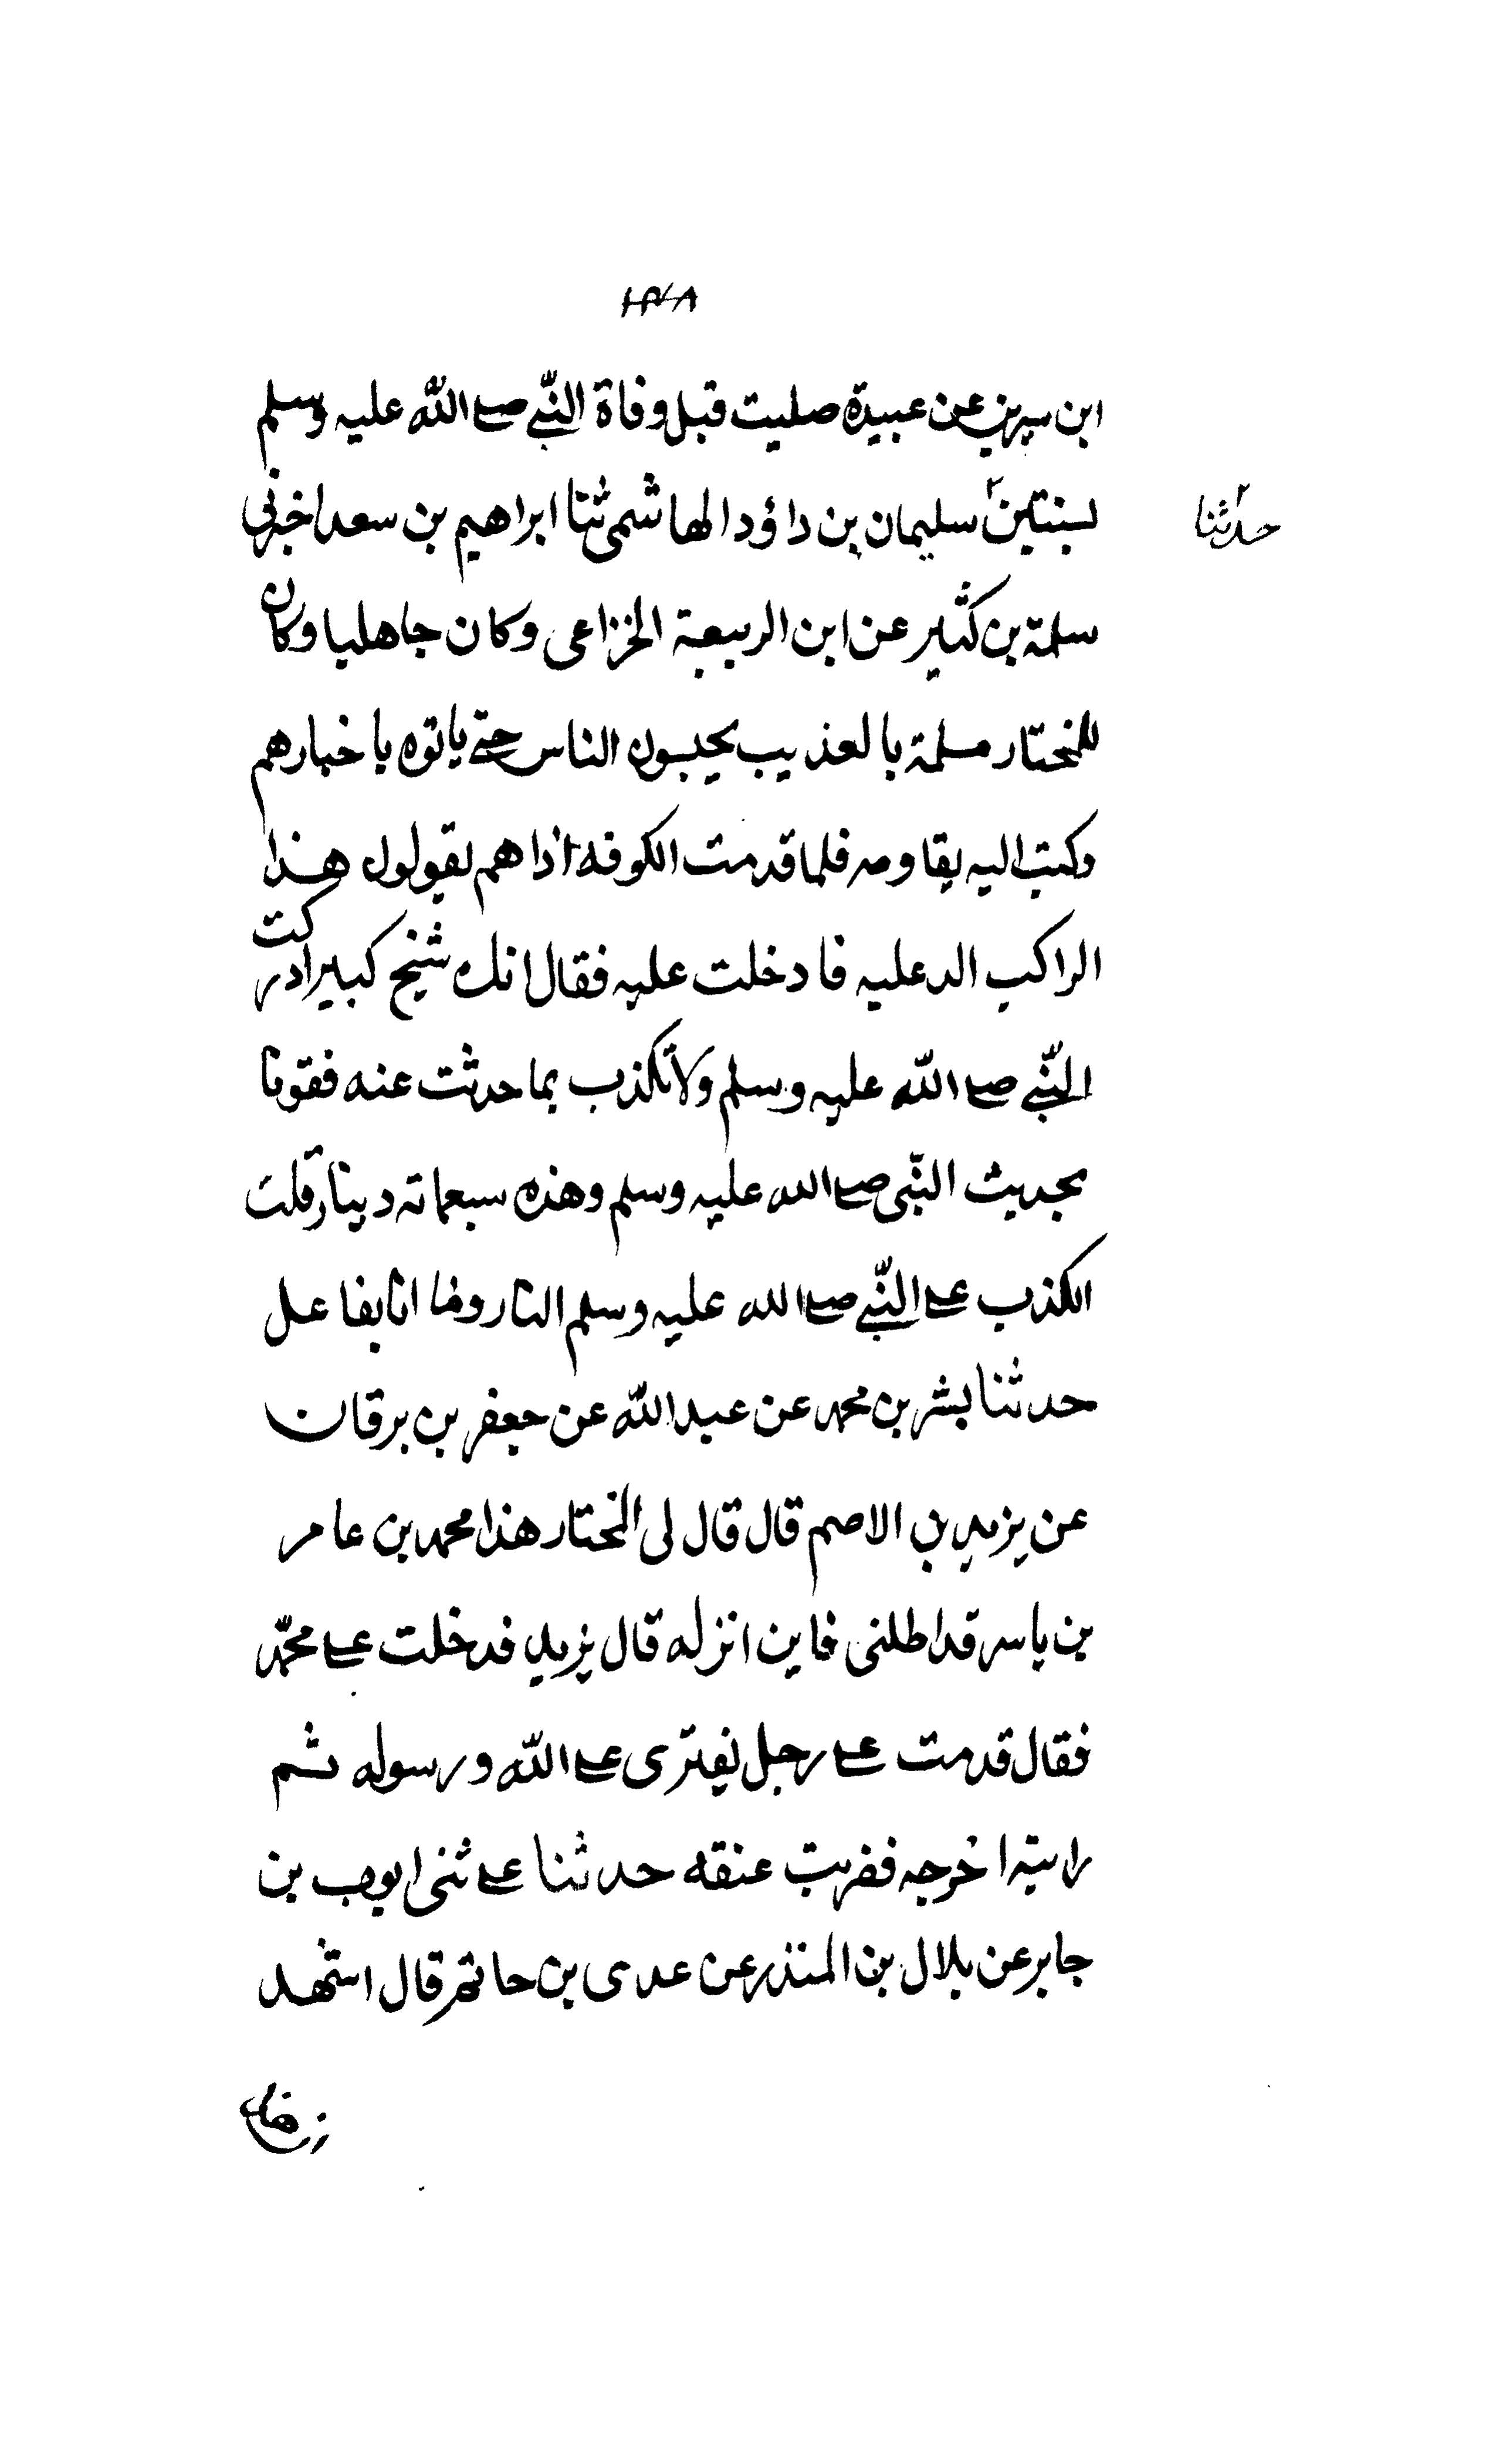 ابن سيرين عن عبيدة صليت قبل وفاة النبي صلى الله عليه وسلم
بسنتين سليمان بن داؤد الهاشمي ثنا ابراهيم بن سعد اخبرني
حدثنا
سلمة بن كثير عن ابن الربيعة الخزاعي وكان جاهليا وكان
للمختار مسلمة بالعذيب يحبسون الناس حتى ياتوه باخبارهم
وكتب اليه بقاومه فلما قدمت الكوفه اذا هم يقولون هذا
الراكب الدعليه فادخلت عليه فقال انك شيخ كبير ادركت
النبي صلى الله عليه وسلم ولا تكذب بما حدثت عنه فقونا
بحديث النبي صلى الله عليه وسلم وهذه سبعمائه دينار قلت
الكذب على النبي صلى الله عليه وسلم النار وما انا بفاعل
حدثنا بشر بن محمد عن عبد الله عن جعفر بن برقان
عن يزيد بن الاصم قال قال لى المختار هذا محمد بن عامر
بن ياسر قد اطلنى فاين انزله قال يزيد فدخلت على محمد
فقال قدمت على رجل يفترى على الله ورسوله ثم
رايته اخرجه فضربت عنقه حدثنا على ثنى ايوب بن
جابر عن بلال بن المنذر عن عدى بن حاتم قال اشهد